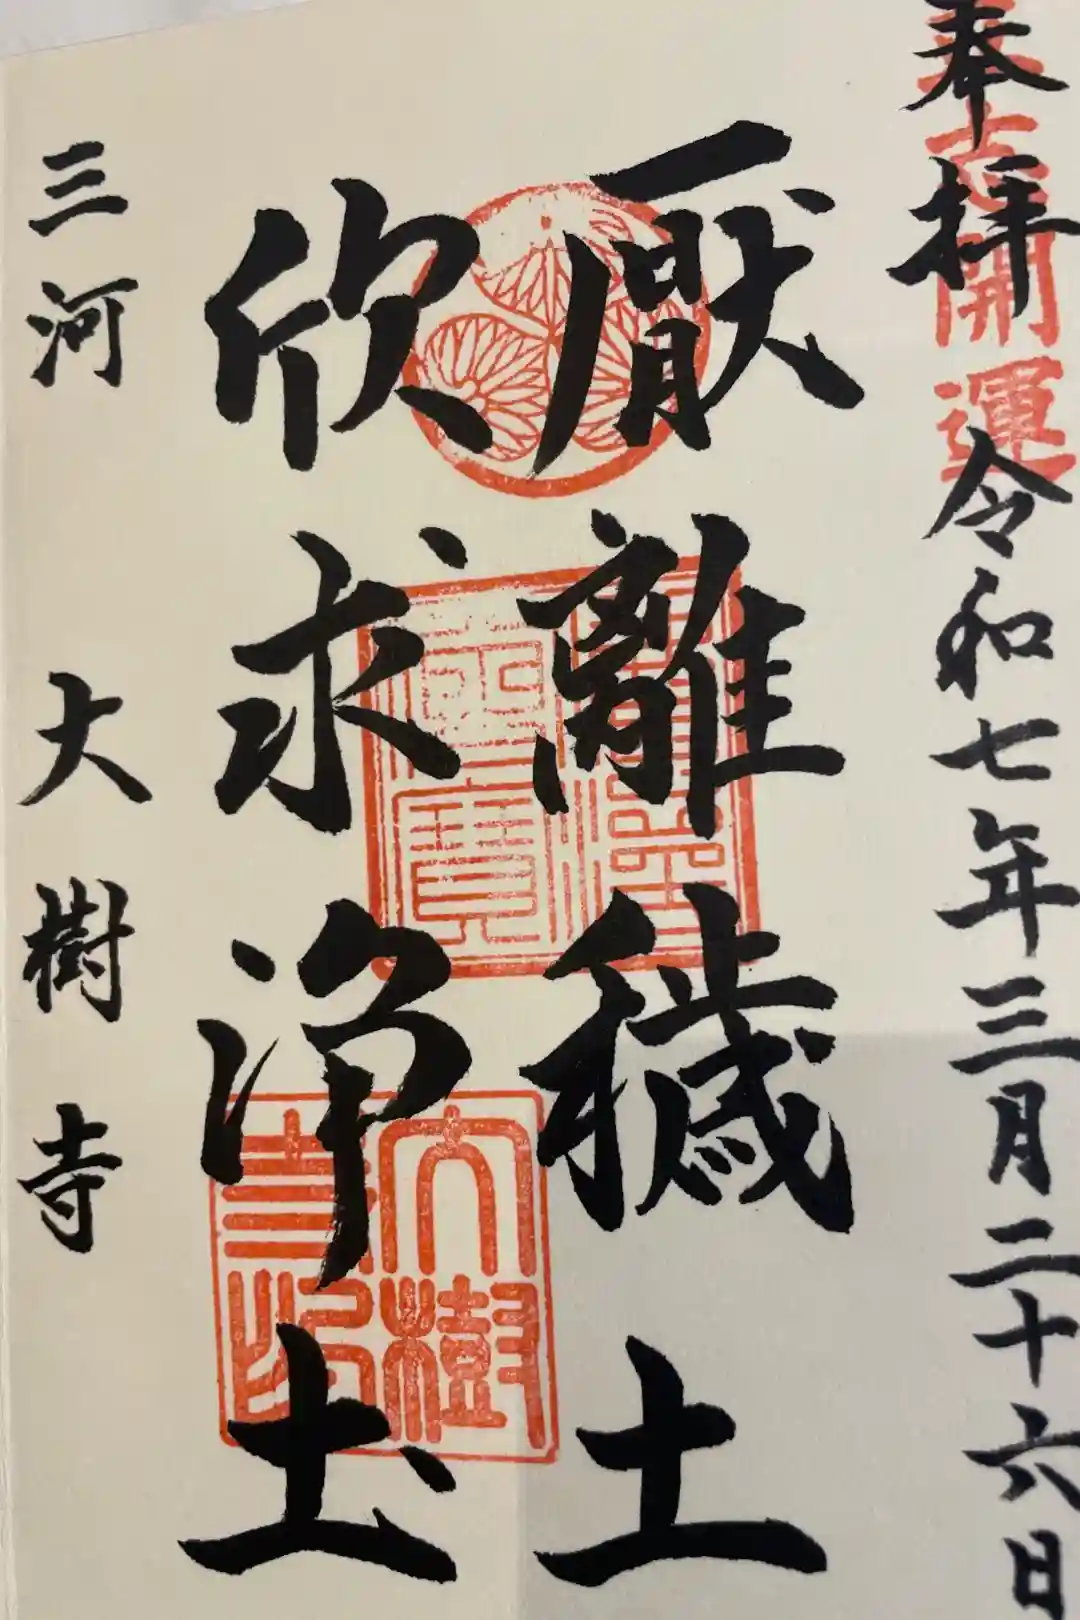 奉拝 令和七年三月二十六日
開運
厭離穢土
欣求浄土
三河 大樹寺
大樹寺印